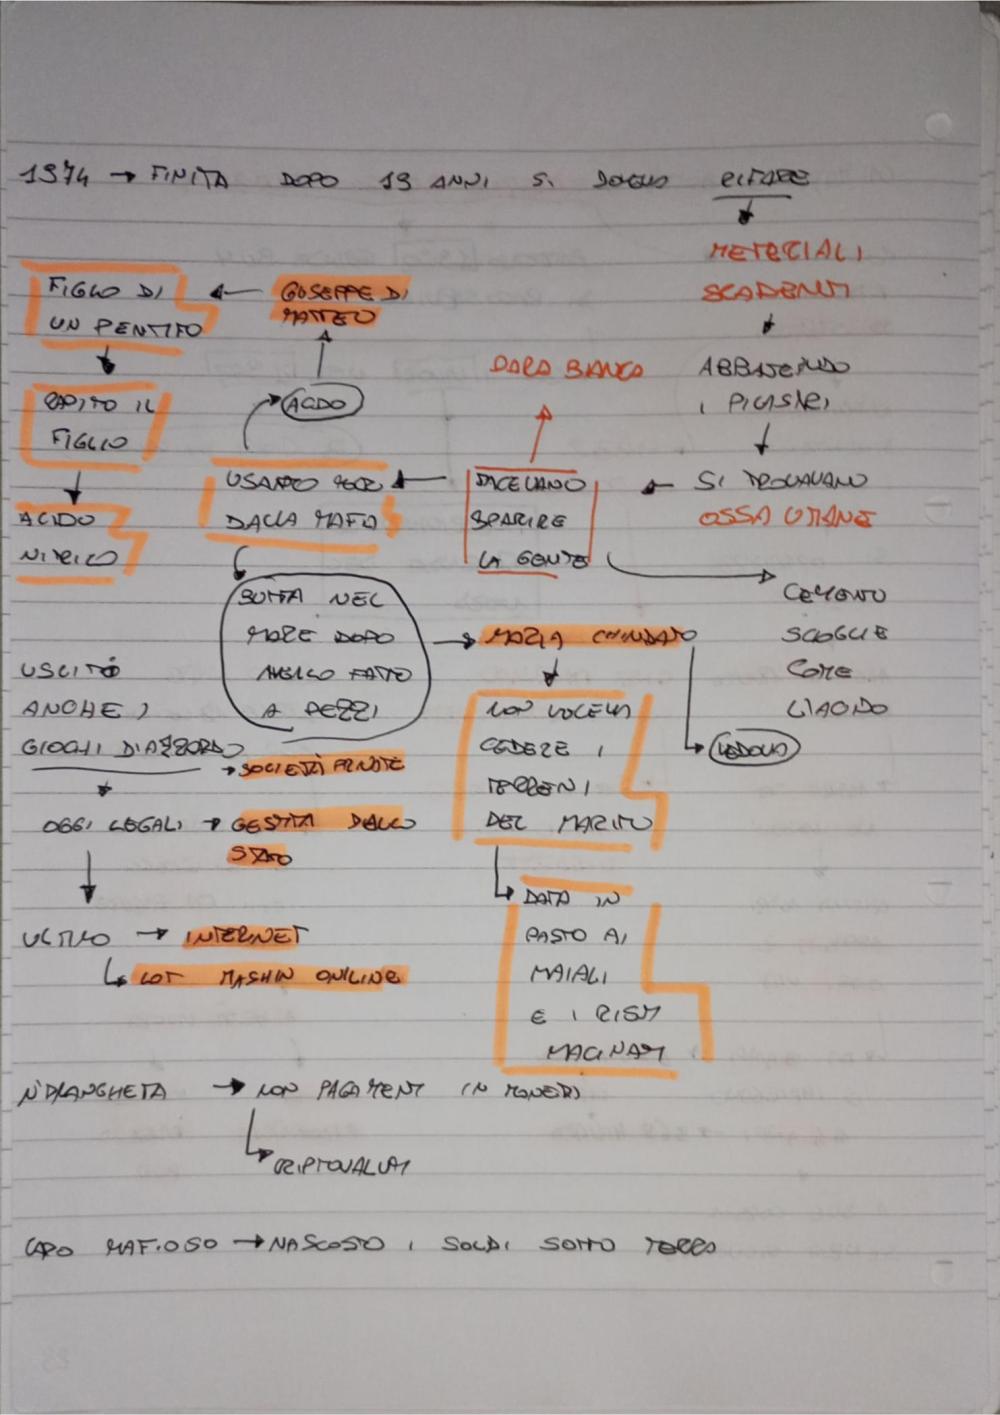 1974 → FINITA DOPO 19 ANNI SI DOVEVA RIFARE
METERIALI
SCADENTI
ABBATTENDO
I PILASTRI
SI TROVAVANO
OSSA UMANE
FACEVANO
SPARIRE
LA GENTE
LUPARA BIANCA
CEMENTO
SCOGLIE
COME
L'ACIDO
USATO
DALLA MAFIA
ACIDO
GIUSEPPE DI
MATTEO
FIGLIO DI
UN PENTITO
RAPITO IL
FIGLIO
ACIDO
NITRICO
BUTTA NEL
MARE DOPO
AVERLO FATTO
A PEZZI
MARIA CHINDAMO
VEDOVA
NON VOLEVA
CEDERE I
TERRENI
DEL MARITO
DATA IN
PASTO AI
MAIALI
E I RESTI
MACINATI
USCITÒ
ANCHE I
GIOCHI D'AZZARDO
→ SOCIETÀ PRIVATE
OGGI LEGALI → GESTITA DALLO
STATO
ULTIMO → INTERNET
LOT MASHIN ONILINE
N'DRANGHETA → NON PAGAMENTI IN MONETA
CRIPTOVALUTA
CAPO MAFIOSO → NASCOSTO I SOLDI SOTTO TERRA